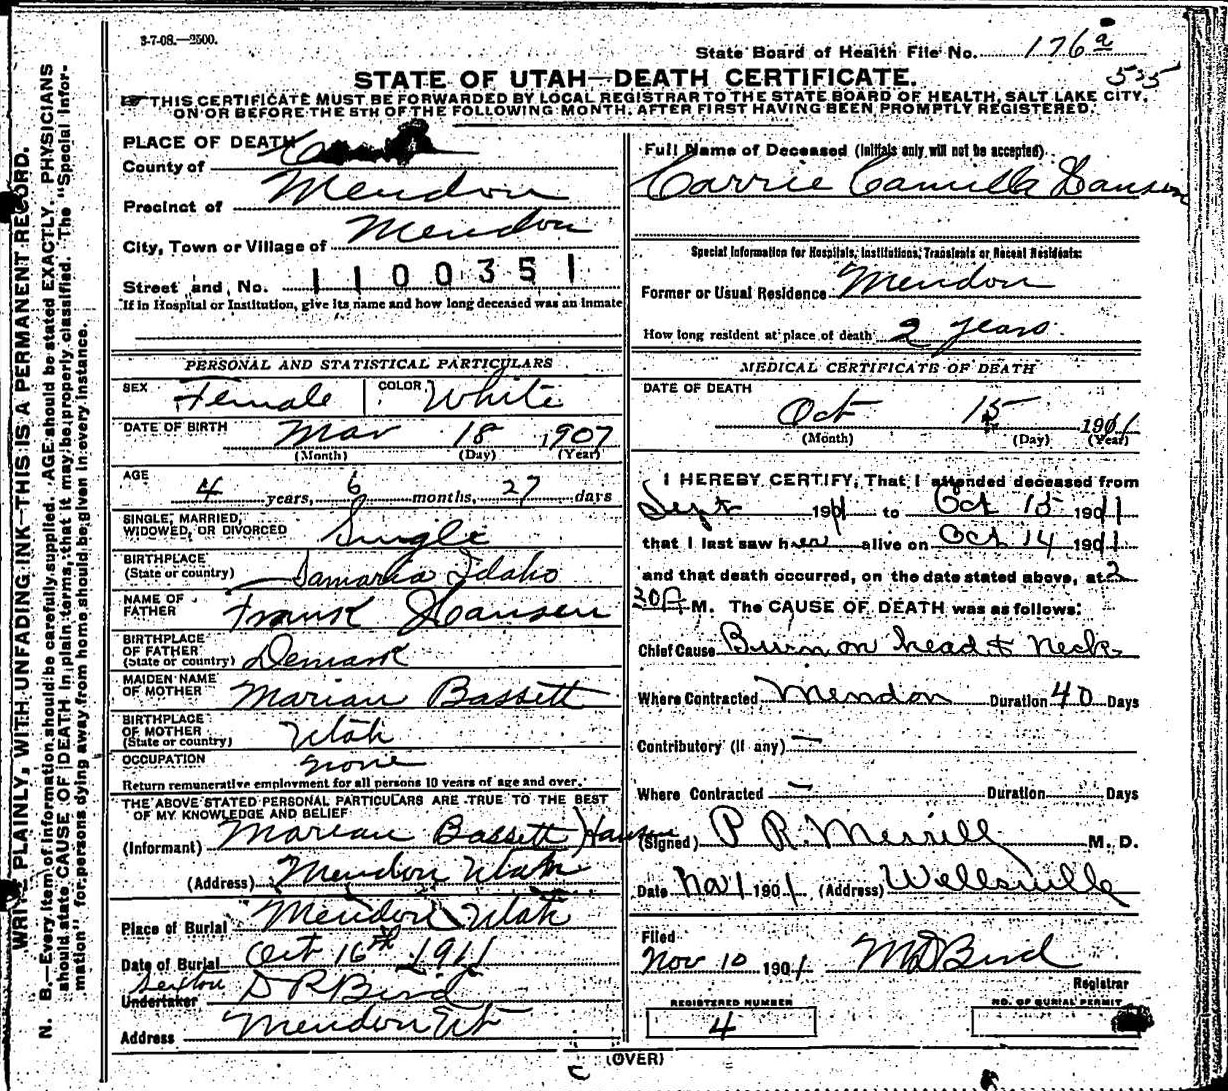 3-7-08.—2500.
State Board of Health File No. 176 a
535
STATE OF UTAH—DEATH CERTIFICATE.
THIS CERTIFICATE MUST BE FORWARDED BY LOCAL REGISTRAR TO THE STATE BOARD OF HEALTH, SALT LAKE CITY,
ON OR BEFORE THE 5TH OF THE FOLLOWING MONTH, AFTER FIRST HAVING BEEN PROMPTLY REGISTERED.
WRITE PLAINLY, WITH UNFADING INK—THIS IS A PERMANENT RECORD.
N. B.—Every item of information should be carefully supplied. AGE should be stated EXACTLY. PHYSICIANS
should state CAUSE OF DEATH in plain terms, that it may be properly classified. The "Special Infor-
mation" for persons dying away from home should be given in every instance.
PLACE OF DEATH
County of
Precinct of Mendon
City, Town or Village of Mendon
Street and No. 1100351
If in Hospital or Institution, give its name and how long deceased was an inmate
PERSONAL AND STATISTICAL PARTICULARS
SEX Female COLOR White
DATE OF BIRTH Mar 18 1907
(Month) (Day) (Year)
AGE 4 years, 6 months, 27 days
SINGLE, MARRIED,
WIDOWED, OR DIVORCED Single
BIRTHPLACE
(State or country) Samaria Idaho
NAME OF
FATHER Frank Hansen
BIRTHPLACE
OF FATHER
(State or country) Demark
MAIDEN NAME
OF MOTHER Marian Bassett
BIRTHPLACE
OF MOTHER
(State or country) Utah
OCCUPATION none
Return remunerative employment for all persons 10 years of age and over.
THE ABOVE STATED PERSONAL PARTICULARS ARE TRUE TO THE BEST
OF MY KNOWLEDGE AND BELIEF
(Informant) Marian Bassett Hansen
(Address) Mendon Utah
Place of Burial Mendon Utah
Date of Burial Oct 16th 1911
Sexton
Undertaker D R Bird
Address Mendon Ut
Full Name of Deceased (Initials only will not be accepted)
Carrie Camilla Hansen
Special Information for Hospitals, Institutions, Transients or Recent Residents:
Former or Usual Residence Mendon
How long resident at place of death 2 years
MEDICAL CERTIFICATE OF DEATH
DATE OF DEATH
Oct 15 1911
(Month) (Day) (Year)
I HEREBY CERTIFY, That I attended deceased from
Sept 1911 to Oct 15 1911
that I last saw her alive on Oct 14 1911
and that death occurred, on the date stated above, at 2
30 A M. The CAUSE OF DEATH was as follows:
Chief Cause Burn on head & neck
Where Contracted Mendon Duration 40 Days
Contributory (if any) —
Where Contracted — Duration Days
(Signed) P R. Merrill M. D.
Date Nov 1 1901 (Address) Wellsville
Filed
Nov 10 1901 M D Bird
Registrar
REGISTERED NUMBER
4
NO. OF BURIAL PERMIT
(OVER)